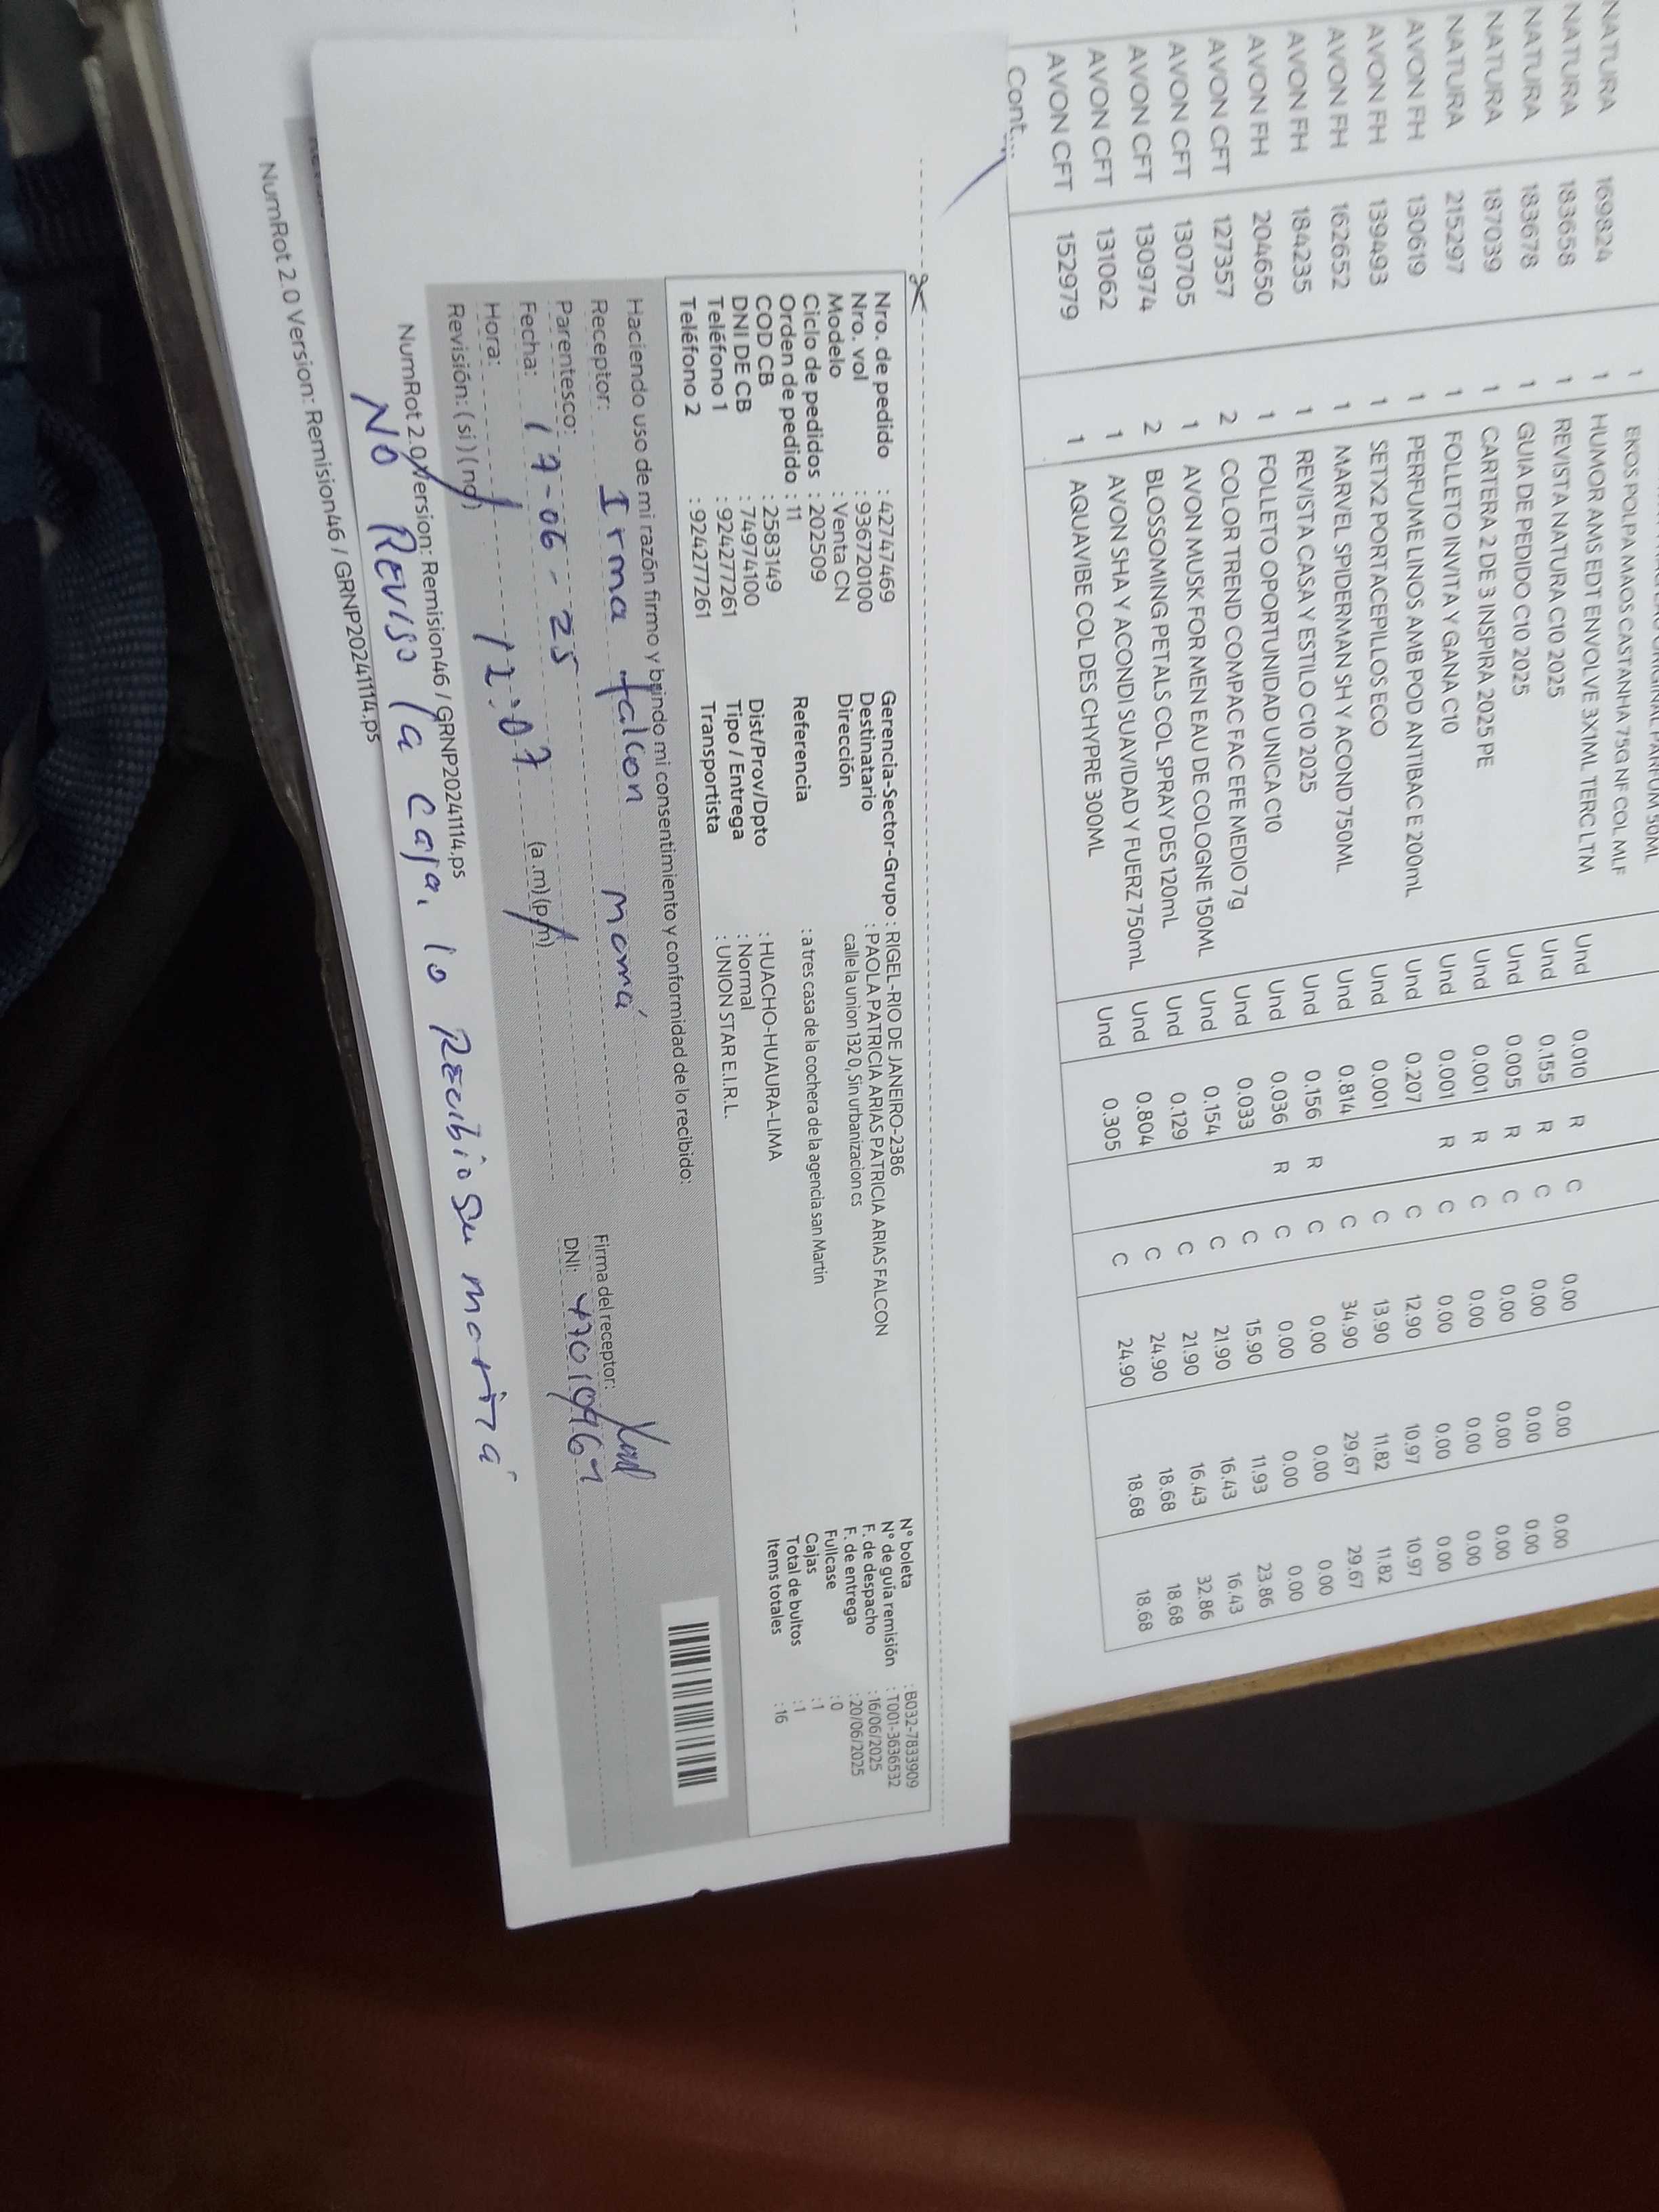 EKOS POLPA MAOS CASTANHA 75G NF COL MLF
NATURA 169824 1 HUMOR AMS EDT ENVOLVE 3X1ML TERC LTM Und 0.010 R C 0.00 0.00 0.00
NATURA 183658 1 REVISTA NATURA C10 2025 Und 0.155 R C 0.00 0.00 0.00
NATURA 183678 1 GUIA DE PEDIDO C10 2025 Und 0.005 R C 0.00 0.00 0.00
NATURA 187039 1 CARTERA 2 DE 3 INSPIRA 2025 PE Und 0.001 R C 0.00 0.00 0.00
NATURA 215297 1 FOLLETO INVITA Y GANA C10 Und 0.001 R C 0.00 0.00 0.00
AVON FH 130619 1 PERFUME LINOS AMB POD ANTIBAC E 200mL Und 0.207 C 12.90 10.97 10.97
AVON FH 139493 1 SETX2 PORTACEPILLOS ECO Und 0.001 C 13.90 11.82 11.82
AVON FH 162652 1 MARVEL SPIDERMAN SH Y ACOND 750ML Und 0.814 C 34.90 29.67 29.67
AVON FH 184235 1 REVISTA CASA Y ESTILO C10 2025 Und 0.156 R C 0.00 0.00 0.00
AVON FH 204650 1 FOLLETO OPORTUNIDAD UNICA C10 Und 0.036 R C 0.00 0.00 0.00
AVON CFT 127357 2 COLOR TREND COMPAC FAC EFE MEDIO 7g Und 0.033 C 15.90 11.93 23.86
AVON CFT 130705 1 AVON MUSK FOR MEN EAU DE COLOGNE 150ML Und 0.154 C 21.90 16.43 16.43
AVON CFT 130974 2 BLOSSOMING PETALS COL SPRAY DES 120mL Und 0.129 C 21.90 16.43 32.86
AVON CFT 131062 1 AVON SHA Y ACONDI SUAVIDAD Y FUERZ 750mL Und 0.804 C 24.90 18.68 18.68
AVON CFT 152979 1 AQUAVIBE COL DES CHYPRE 300ML Und 0.305 C 24.90 18.68 18.68
Cont...
Nro. de pedido : 42747469 Gerencia-Sector-Grupo : RIGEL-RIO DE JANEIRO-2386 N° boleta : B032-7833909
Nro. vol : 936720100 Destinatario : PAOLA PATRICIA ARIAS PATRICIA ARIAS FALCON N° de guía remisión : T001-3636532
Modelo : Venta CN Dirección calle la union 132 0, Sin urbanizacion cs F. de despacho : 16/06/2025
Ciclo de pedidos : 202509 F. de entrega : 20/06/2025
Orden de pedido : 11 Referencia : a tres casa de la cochera de la agencia san Martin Fullcase : 0
COD CB : 2583149 Cajas : 1
DNI DE CB : 74974100 Dist/Prov/Dpto : HUACHO-HUAURA-LIMA Total de bultos : 1
Teléfono 1 : 924277261 Tipo / Entrega : Normal Items totales : 16
Teléfono 2 : 924277261 Transportista : UNION STAR E.I.R.L.
Haciendo uso de mi razón firmo y brindo mi consentimiento y conformidad de lo recibido:
Receptor: Irma falcon mamá Firma del receptor:
Parentesco: DNI:
Fecha: 17-06-25
Hora: 12:07 (a.m)(p.m)
Revisión: (si) (no)
NumRot 2.0 Version: Remision46 / GRNP20241114.ps
NO Reviso la caja, lo Recibio su mamá
NumRot 2.0 Version: Remision46 / GRNP20241114.ps